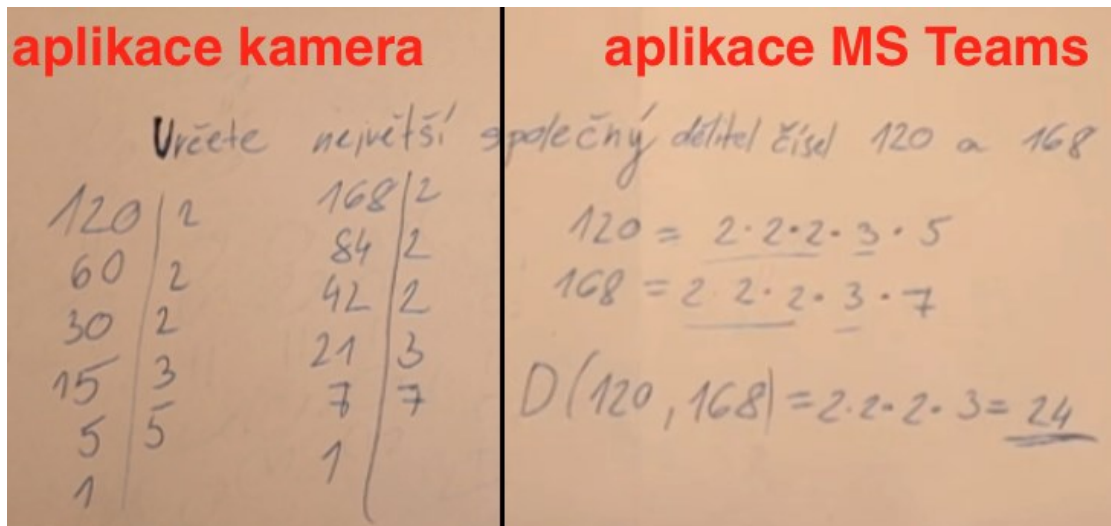 aplikace kamera
aplikace MS Teams
Určete největší společný dělitel čísel 120 a 168
120 | 2
60 | 2
30 | 2
15 | 3
5 | 5
1
168 | 2
84 | 2
42 | 2
21 | 3
7 | 7
1
120 = 2·2·2·3·5
168 = 2·2·2·3·7
D(120, 168) = 2·2·2·3 = 24